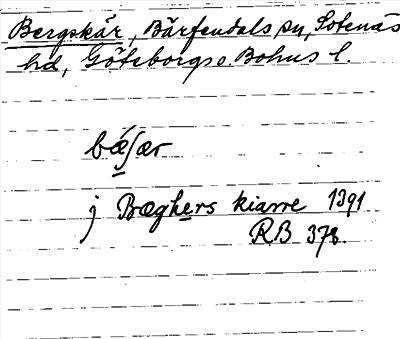 Bergskär, Bärfendals sn, Sotenäs
hd, Göteborgs o. Bohus l.
bǽʃær
j Bæghers kiarre 1391
RB 378.